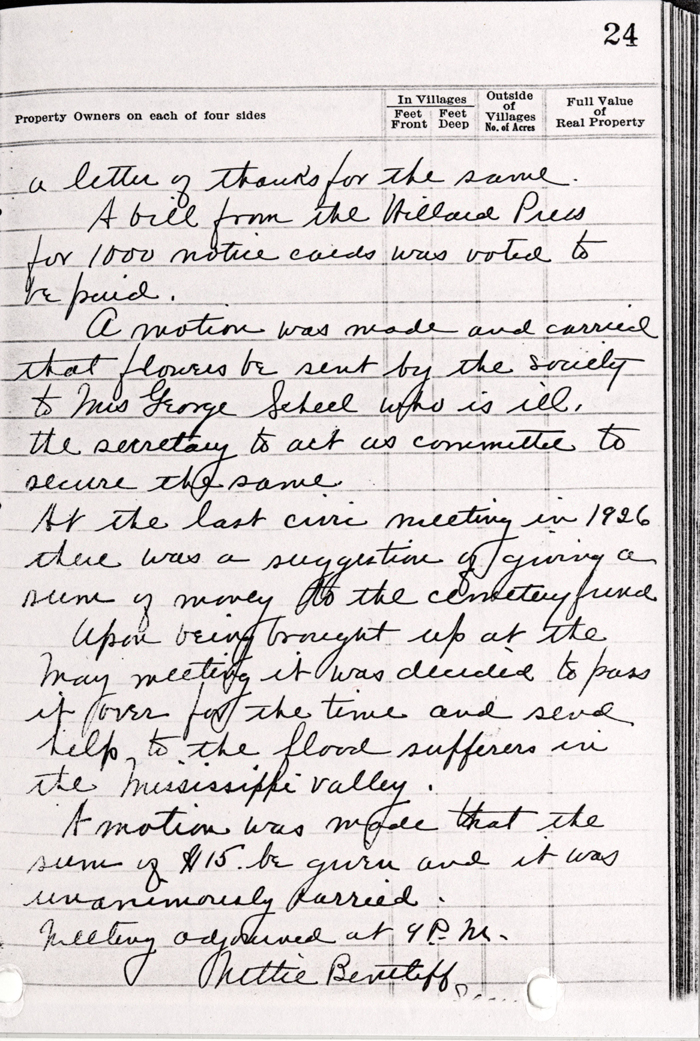 24
Property Owners on each of four sides
In Villages
Feet Front
Feet Deep
Outside of Villages No. of Acres
Full Value of Real Property
a letter of thanks for the same.
A bill from the Press
for 1000 notice cards was voted to
be paid.
A motion was made and carried
that flowers be sent by the society
to Mrs George Scheel who is ill,
the secretary to act as committee to
secure the same.
At the last civic meeting in 1926
there was a suggestion of giving a
sum of money to the cemetery fund
Upon being brought up at the
May meeting it was decided to pass
it over for the time and send
help to the flood sufferers in
the Mississippi valley.
A motion was made that the
sum of $15 be given and it was
unanimously carried.
Meeting adjourned at 9 P.M.
Nettie